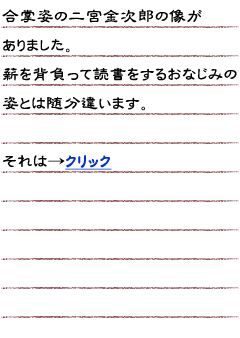 合掌姿の二宮金次郎の像が
ありました。
薪を背負って読書をするおなじみの
姿とは随分違います。
それは→クリック